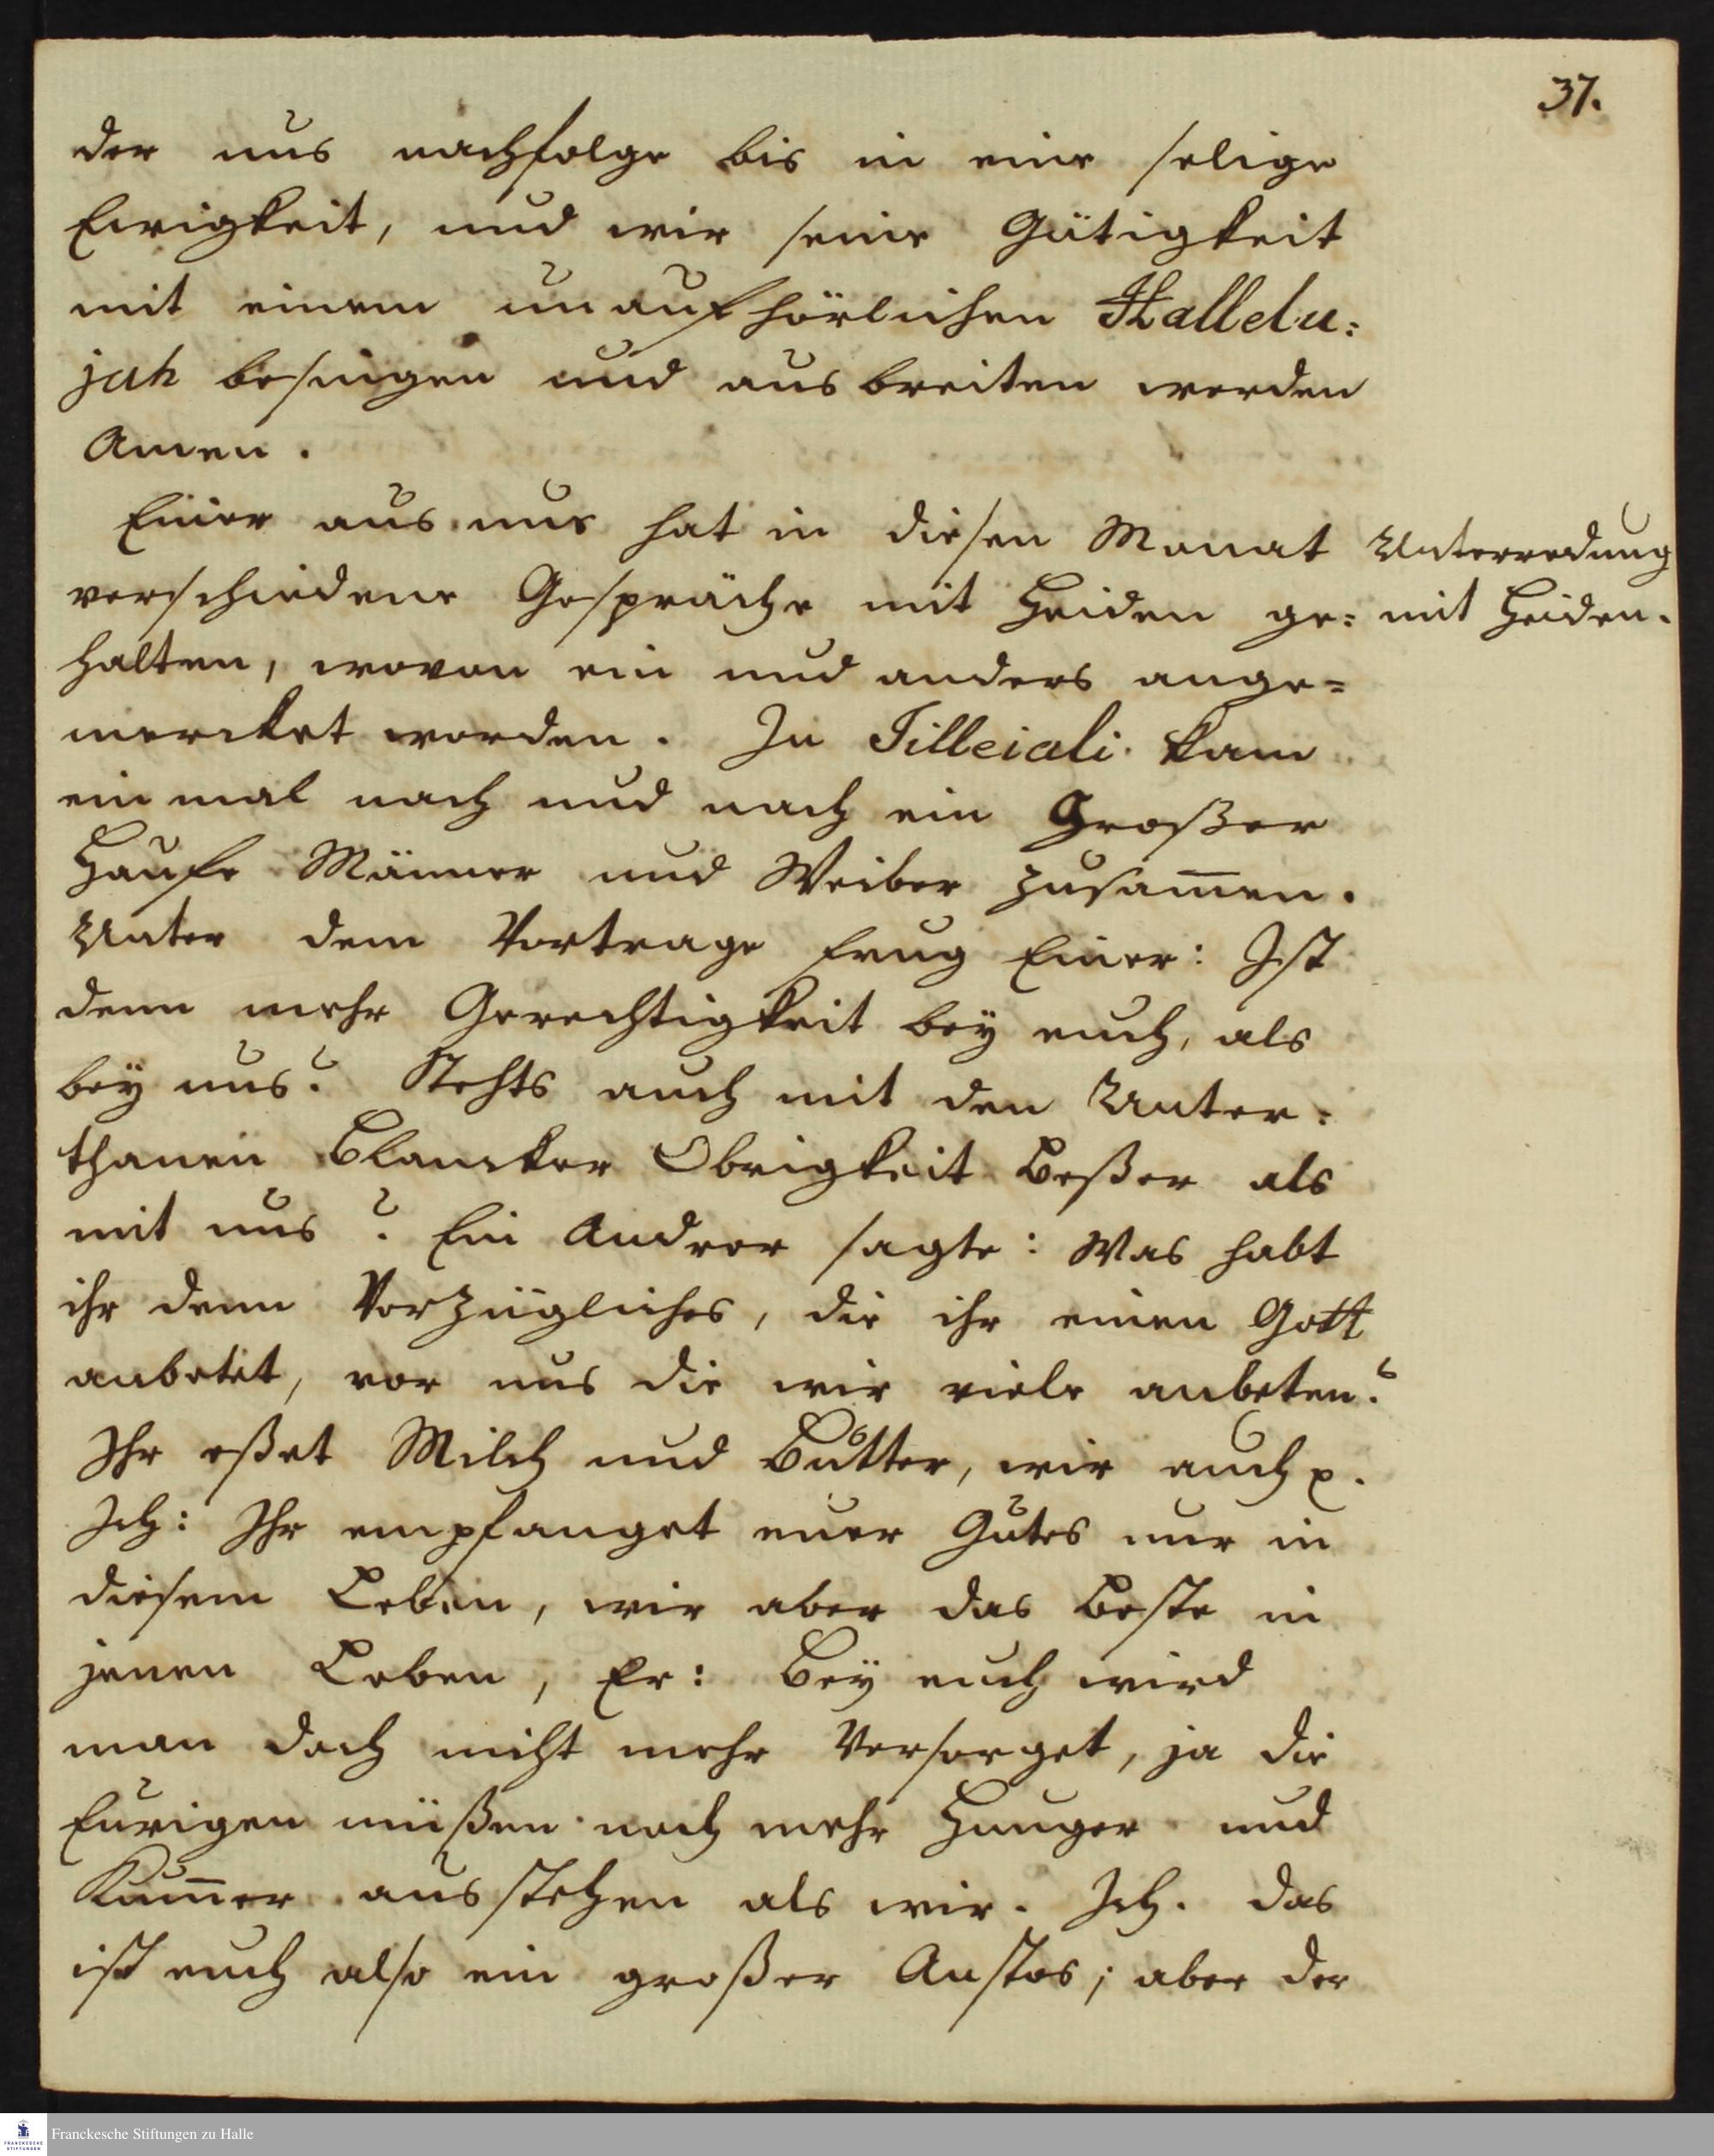 37.
der uns nachfolge bis in eine selige
Ewigkeit, und wir seine Gütigkeit
mit einem unaufhörlichen Hallelu:
jah besingen und ausbreiten werden
Amen.
Einer aus uns hat in diesen Monat
Unterredung
verschiedene Gespräche mit Heiden ge:
mit Heiden.
halten, wovon ein und anders ange=
mercket worden. In Tilleiali kam
einmal nach und nach ein Großer
Haufe Männer und Weiber zusam̄en.
Unter dem Vortrage frug Einer: Ist
denn mehr Gerechtigkeit bey euch, als
bey uns? Stehts auch mit den Unter:
thanen Blancker Obrigkeit Beßer als
mit uns? Ein Andrer sagte: Was habt
ihr denn Vorzügliches, die ihr einen Gott
anbetet, vor uns die wir viele anbeten?
Ihr eßet Milch und Butter, wir auch p.
Ich: Ihr empfanget euer Gutes nur in
diesem Leben, wir aber das Beste in
jenen Leben, Er: Bey euch wird
man doch nicht mehr Versorget, ja die
Eurigen müßen noch mehr Hunger und
Kum̄er ausstehen als wir. Ich. das
ist euch also ein großer Anstos; aber der
Franckesche Stiftungen zu Halle
FRANCKESCHE STIFTUNGEN